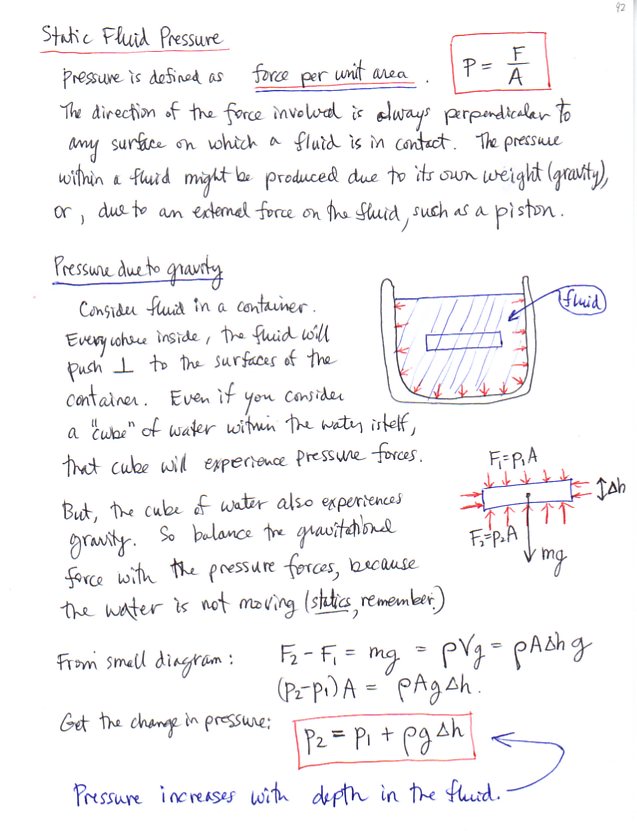 92
Static Fluid Pressure
Pressure is defined as force per unit area. P = F/A
The direction of the force involved is always perpendicular to
any surface on which a fluid is in contact. The pressure
within a fluid might be produced due to its own weight (gravity),
or, due to an external force on the fluid, such as a piston.
Pressure due to gravity
Consider fluid in a container.
Everywhere inside, the fluid will
push ⊥ to the surfaces of the
container. Even if you consider
a "cube" of water within the water istelf,
that cube will experience pressure forces.
fluid
But, the cube of water also experiences
gravity. So balance the gravitational
force with the pressure forces, because
the water is not moving (statics, remember.)
F₁=p₁A
Δh
F₂=p₂A
mg
From small diagram: F₂ - F₁ = mg = ρVg = ρAΔhg
(p₂-p₁)A = ρAgΔh.
Get the change in pressure: p₂ = p₁ + ρgΔh
Pressure increases with depth in the fluid.